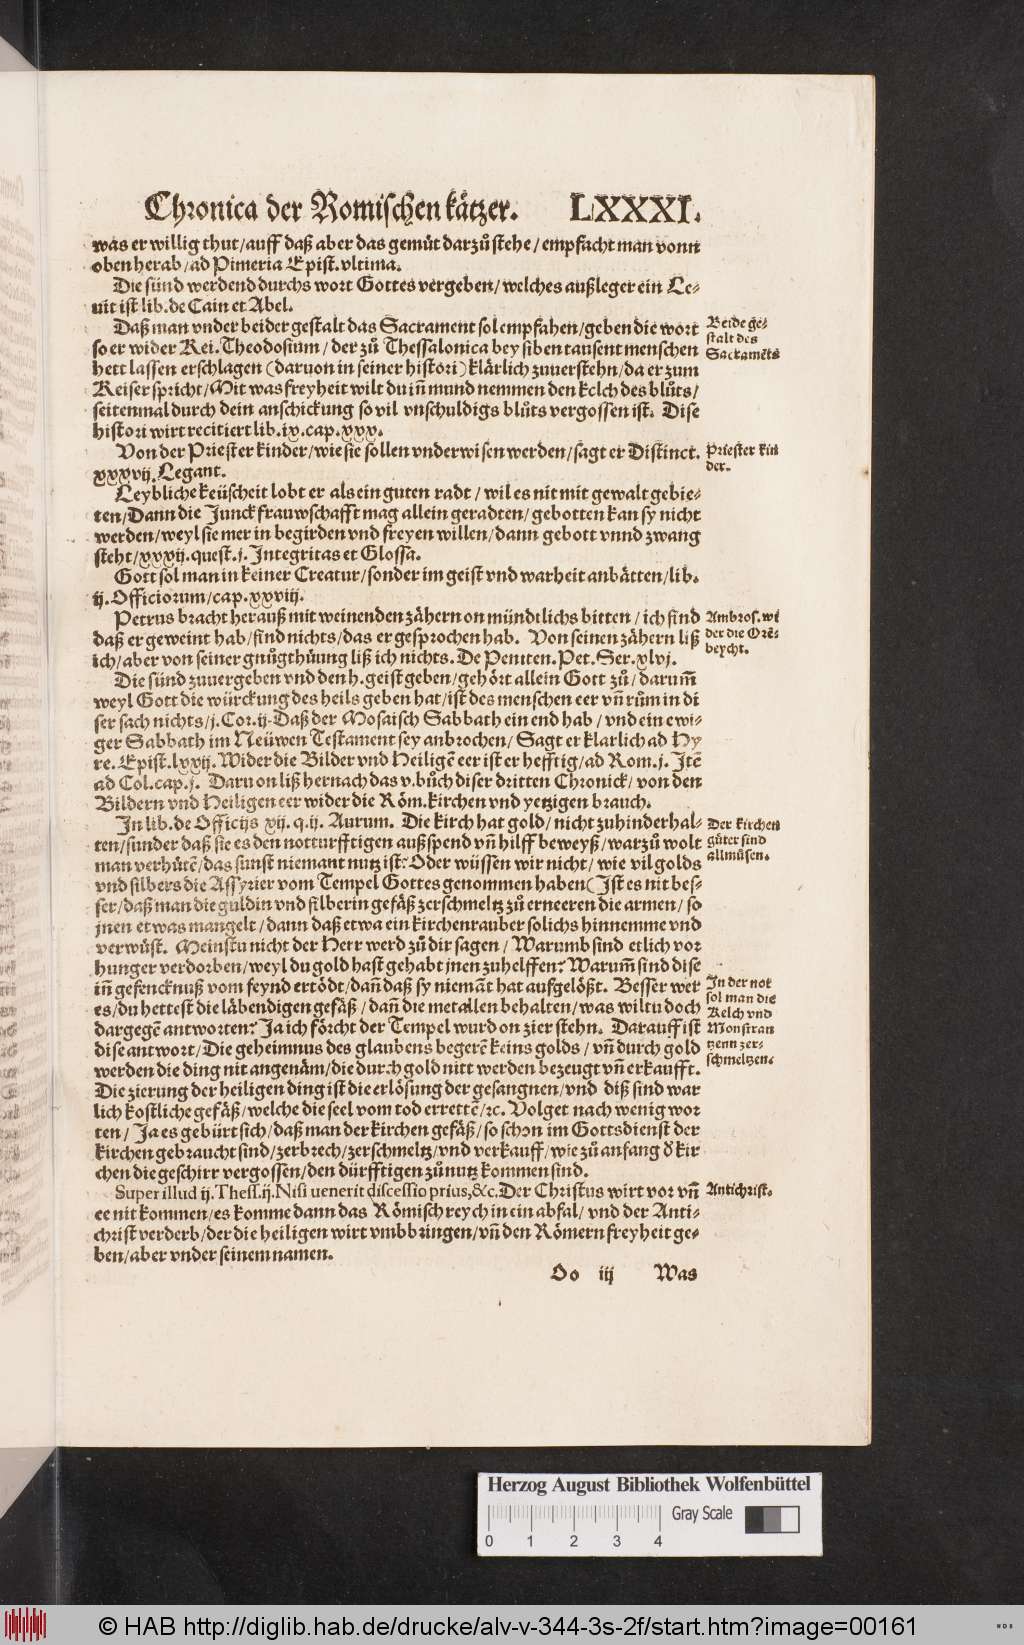 Chronica der Romischen kätzer. LXXXI.
was er willig thut/auff daß aber das gemüt darzů stehe/empfacht man vonn
oben herab/ad Pimeria Epist.vltima.
Die sünd werdend durchs wort Gottes vergeben/welches außleger ein Le-
uit ist lib.de Cain et Abel.
Daß man vnder beider gestalt das Sacrament sol empfahen/geben die wort
so er wider Kei.Theodosium/der zů Thessalonica bey siben tausent menschen
hett lassen erschlagen (daruon in seiner histori) klärlich zuuerstehn/da er zum
Keiser spricht/Mit was freyheit wilt du iñ mund nemmen den kelch des blůts/
seitenmal durch dein anschickung so vil vnschuldigs blůts vergossen ist. Dise
histori wirt recitiert lib.ix.cap.xxx.
Beide ge-
stalt des
Sacramẽts
Von der Priester kinder/wie sie sollen vnderwisen werden/sagt er Distinct.
xxxvij.Legant.
Priester kin
der.
Leybliche keüscheit lobt er als ein guten radt/wil es nit mit gewalt gebie-
ten/Dann die Junckfrauwschafft mag allein geradten/gebotten kan sy nicht
werden/weyl sie mer in begirden vnd freyen willen/dann gebott vnnd zwang
steht/xxxij.quest.j.Integritas et Glossa.
Gott sol man in keiner Creatur/sonder im geist vnd warheit anbätten/lib.
ij.Officiorum/cap.xxviij.
Petrus bracht herauß mit weinenden zähern on mündtlichs bitten/ich find
daß er geweint hab/find nichts/das er gesprochen hab. Von seinen zähern liß
ich/aber von seiner gnůgthůung liß ich nichts. De Peniten.Pet.Ser.xlvj.
Ambros.wi
der die Orẽ-
beycht.
Die sünd zuuergeben vnd den h.geist geben/gehört allein Gott zů/darum̃
weyl Gott die würckung des heils geben hat/ist des menschen eer vñ rům in di
ser sach nichts/j.Cor.ij.Daß der Mosaisch Sabbath ein end hab/vnd ein ewi-
ger Sabbath im Neüwen Testament sey anbrochen/Sagt er klarlich ad Hy
re.Epist.lxxij.Wider die Bilder vnd Heiligẽ eer ist er hefftig/ad Rom.j.Itẽ
ad Col.cap.j. Daruon liß hernach das v.bůch diser dritten Chronick/von den
Bildern vnd Heiligen eer wider die Röm.kirchen vnd yetzigen brauch.
In lib.de Officijs xij.q.ij.Aurum. Die kirch hat gold/nicht zuhinderhal-
ten/sunder daß sie es den notturfftigen außspend vñ hilff beweyß/warzů wolt
man verhütẽ/das sunst niemant nutz ist? Oder wüssen wir nicht/wie vil golds
vnd silbers die Assyrier vom Tempel Gottes genommen haben? Ist es nit bes-
ser/daß man die guldin vnd silberin gefäß zerschmeltz zů erneeren die armen/so
jnen etwas mangelt/dann daß etwa ein kirchenrauber solichs hinnemme vnd
verwůst. Meinstu nicht der Herr werd zů dir sagen/Warumb sind etlich vor
hunger verdorben/weyl du gold hast gehabt jnen zuhelffen? Warum̃ sind dise
iñ gefencknuß vom feynd ertödt/dañ daß sy niemãt hat aufgelößt. Besser wer
es/du hettest die läbendigen gefäß/dañ die metallen behalten/was wiltu doch
dargegẽ antworten? Ja ich förcht der Tempel wurd on zier stehn. Darauff ist
dise antwort/Die geheimnus des glaubens begerẽ keins golds/vñ durch gold
werden die ding nit angenäm/die durch gold nitt werden bezeugt vñ erkaufft.
Die zierung der heiligen ding ist die erlösung der gefangnen/vnd diß sind war
lich kostliche gefäß/welche die seel vom tod errettẽ/ꝛc. Volget nach wenig wor
ten/Ja es gebürt sich/daß man der kirchen gefäß/so schon im Gottsdienst der
kirchen gebraucht sind/zerbrech/zerschmeltz/vnd verkauff/wie zů anfang ď kir
chen die geschirr vergossen/den dürfftigen zů nutz kommen sind.
Der kirchen
güter sind
allmůsen.
In der not
sol man die
Kelch vnd
Monstran
tzenn zer-
schmeltzen.
Super illud ij.Thess.ij.Nisi uenerit discessio prius,&c.Der Christus wirt vor vñ
ee nit kommen/es komme dann das Römisch reych in ein abfal/vnd der Anti-
christ verderb/der die heiligen wirt vmbbringen/vñ den Römern freyheit ge-
ben/aber vnder seinem namen.
Antichrist.
Oo iij Was
Herzog August Bibliothek Wolfenbüttel
0 1 2 3 4
Gray Scale
© HAB http://diglib.hab.de/drucke/alv-v-344-3s-2f/start.htm?image=00161